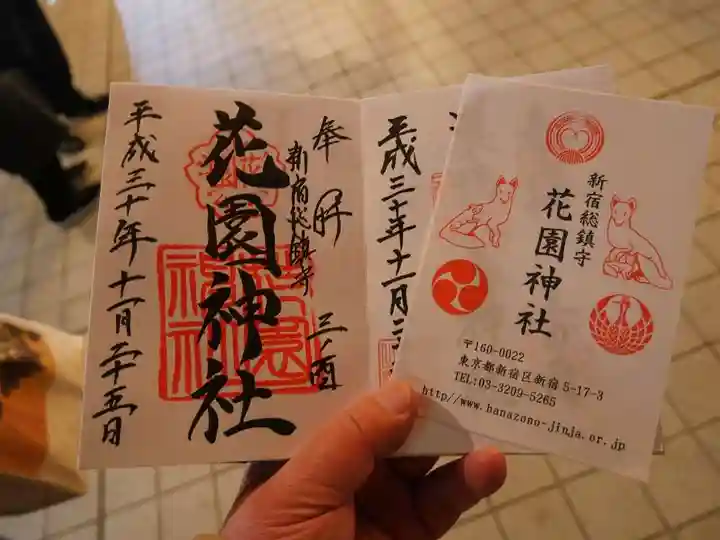 奉拝
新宿総鎮守
三ノ酉
花園神社
平成三十年十一月二十五日
平成三十年十一月二
新宿総鎮守
花園神社
〒160-0022
東京都新宿区新宿5-17-3
TEL:03-3209-5265
http//www.hanazono-jinja.or.jp